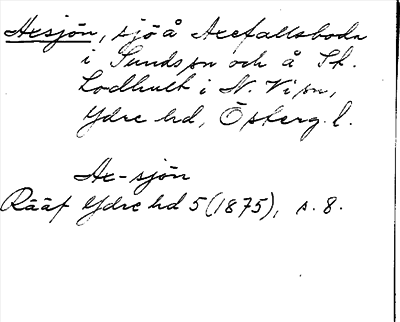 Axsjön, sjö å Axefallsboda
i Sunds sn och å St.
Lodhult i N. Vi sn,
Ydre hd, Östergl.
Ax-sjön
Rääf Ydre hd 5 (1875), s. 8.